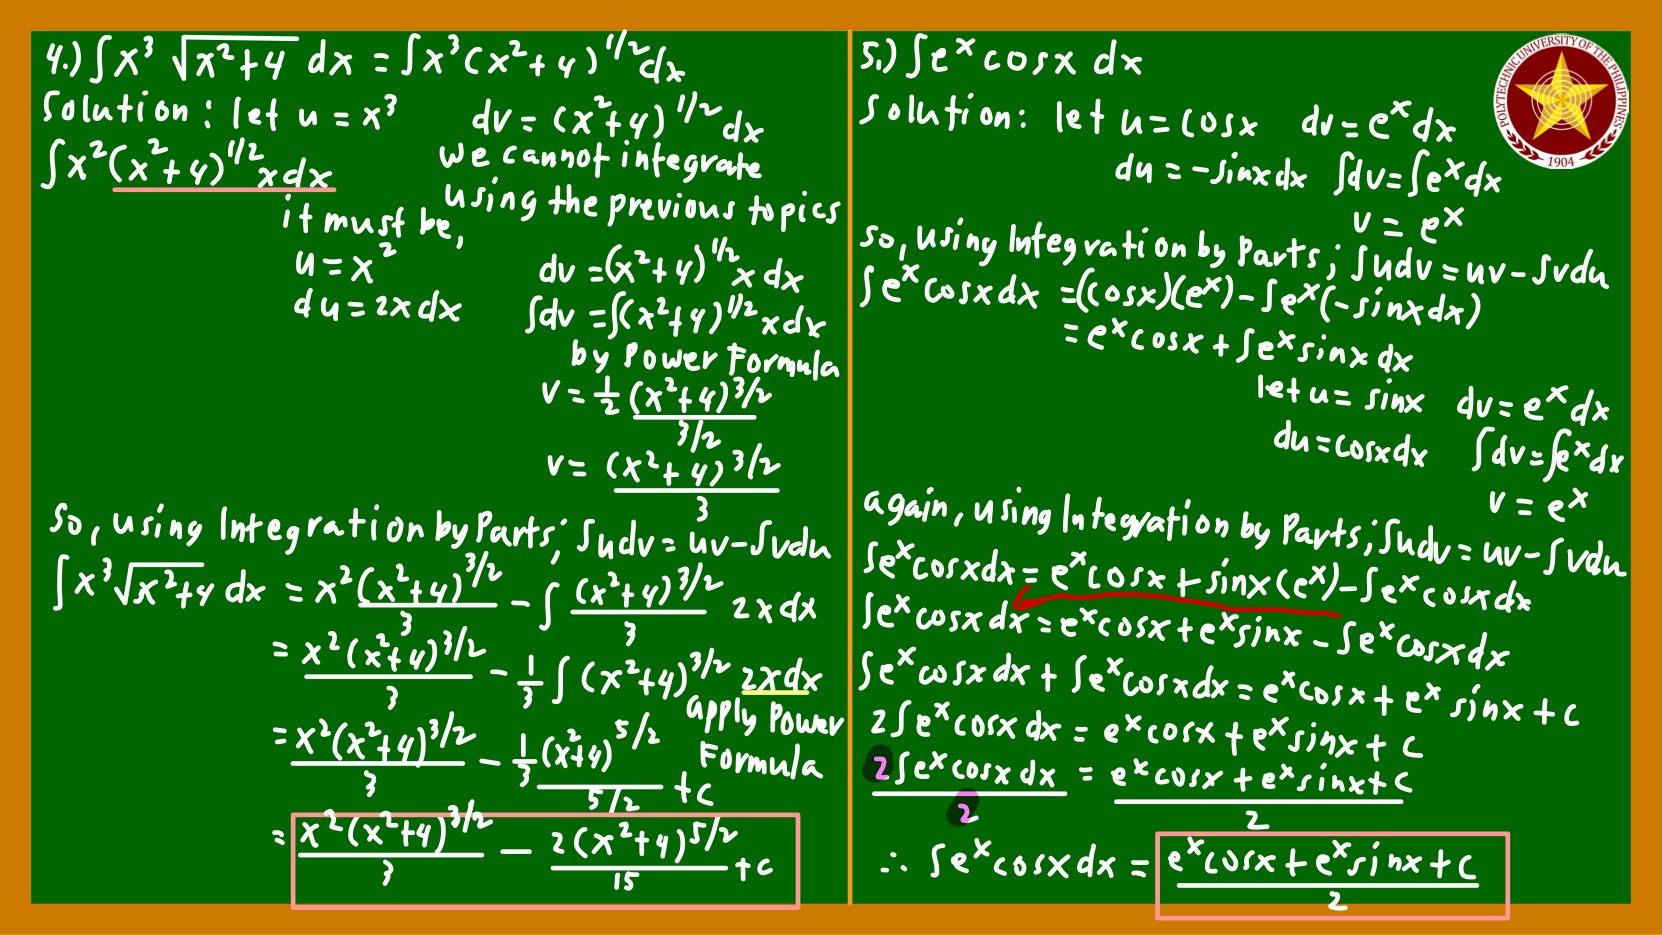 4.) ∫x³ √(x²+4) dx = ∫x³(x²+4)^1/2 dx
Solution: let u = x³   dv = (x²+4)^1/2 dx
∫x²(x²+4)^1/2 xdx   we cannot integrate
using the previous topics
it must be,
u = x²   dv = (x²+4)^1/2 x dx
du = 2x dx   ∫dv = ∫(x²+4)^1/2 xdx
by Power Formula
v = 1/2 (x²+4)^3/2 / 3/2
v = (x²+4)^3/2 / 3
So, using Integration by Parts; ∫udv = uv-∫vdu
∫x³√(x²+4) dx = x²(x²+4)^3/2 / 3 - ∫ (x²+4)^3/2 / 3 2xdx
= x²(x²+4)^3/2 / 3 - 1/3 ∫(x²+4)^3/2 2xdx
apply Power
Formula
= x²(x²+4)^3/2 / 3 - 1/3 (x²+4)^5/2 / 5/2 + c
= x²(x²+4)^3/2 / 3 - 2(x²+4)^5/2 / 15 + c
5.) ∫e^x cosx dx
Solution: let u = cosx   dv = e^x dx
du = -sinxdx   ∫dv = ∫e^x dx
v = e^x
so, using Integration by Parts; ∫udv = uv-∫vdu
∫e^x cosxdx = (cosx)(e^x) - ∫e^x(-sinxdx)
= e^x cosx + ∫e^x sinx dx
let u = sinx   dv = e^x dx
du = cosxdx   ∫dv = ∫e^x dx
v = e^x
again, using Integration by Parts; ∫udv = uv-∫vdu
∫e^x cosxdx = e^x cosx + sinx(e^x) - ∫e^x cosxdx
∫e^x cosxdx = e^x cosx + e^x sinx - ∫e^x cosxdx
∫e^x cosxdx + ∫e^x cosxdx = e^x cosx + e^x sinx + c
2∫e^x cosxdx = e^x cosx + e^x sinx + c
2∫e^x cosxdx / 2 = e^x cosx + e^x sinx + c / 2
∴ ∫e^x cosxdx = e^x cosx + e^x sinx + c / 2
POLYTECHNIC UNIVERSITY OF THE PHILIPPINES
1904